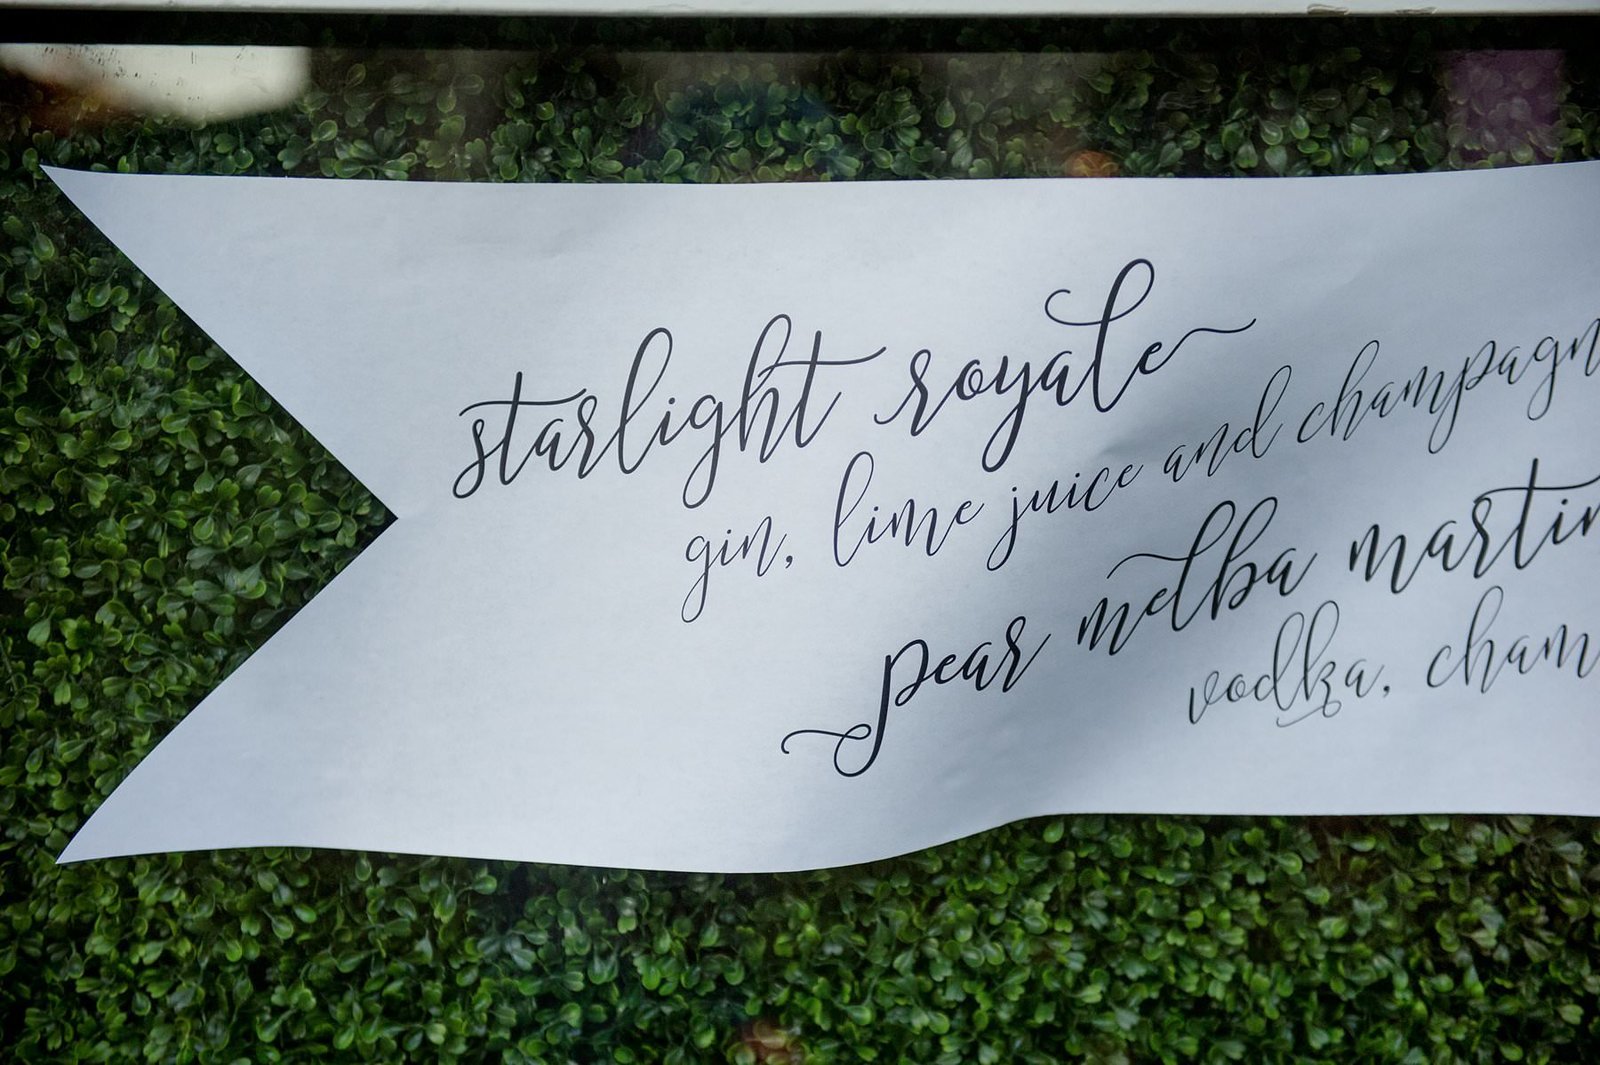 starlight royale
gin, lime juice and champagn
pear melba martin
vodka, cham